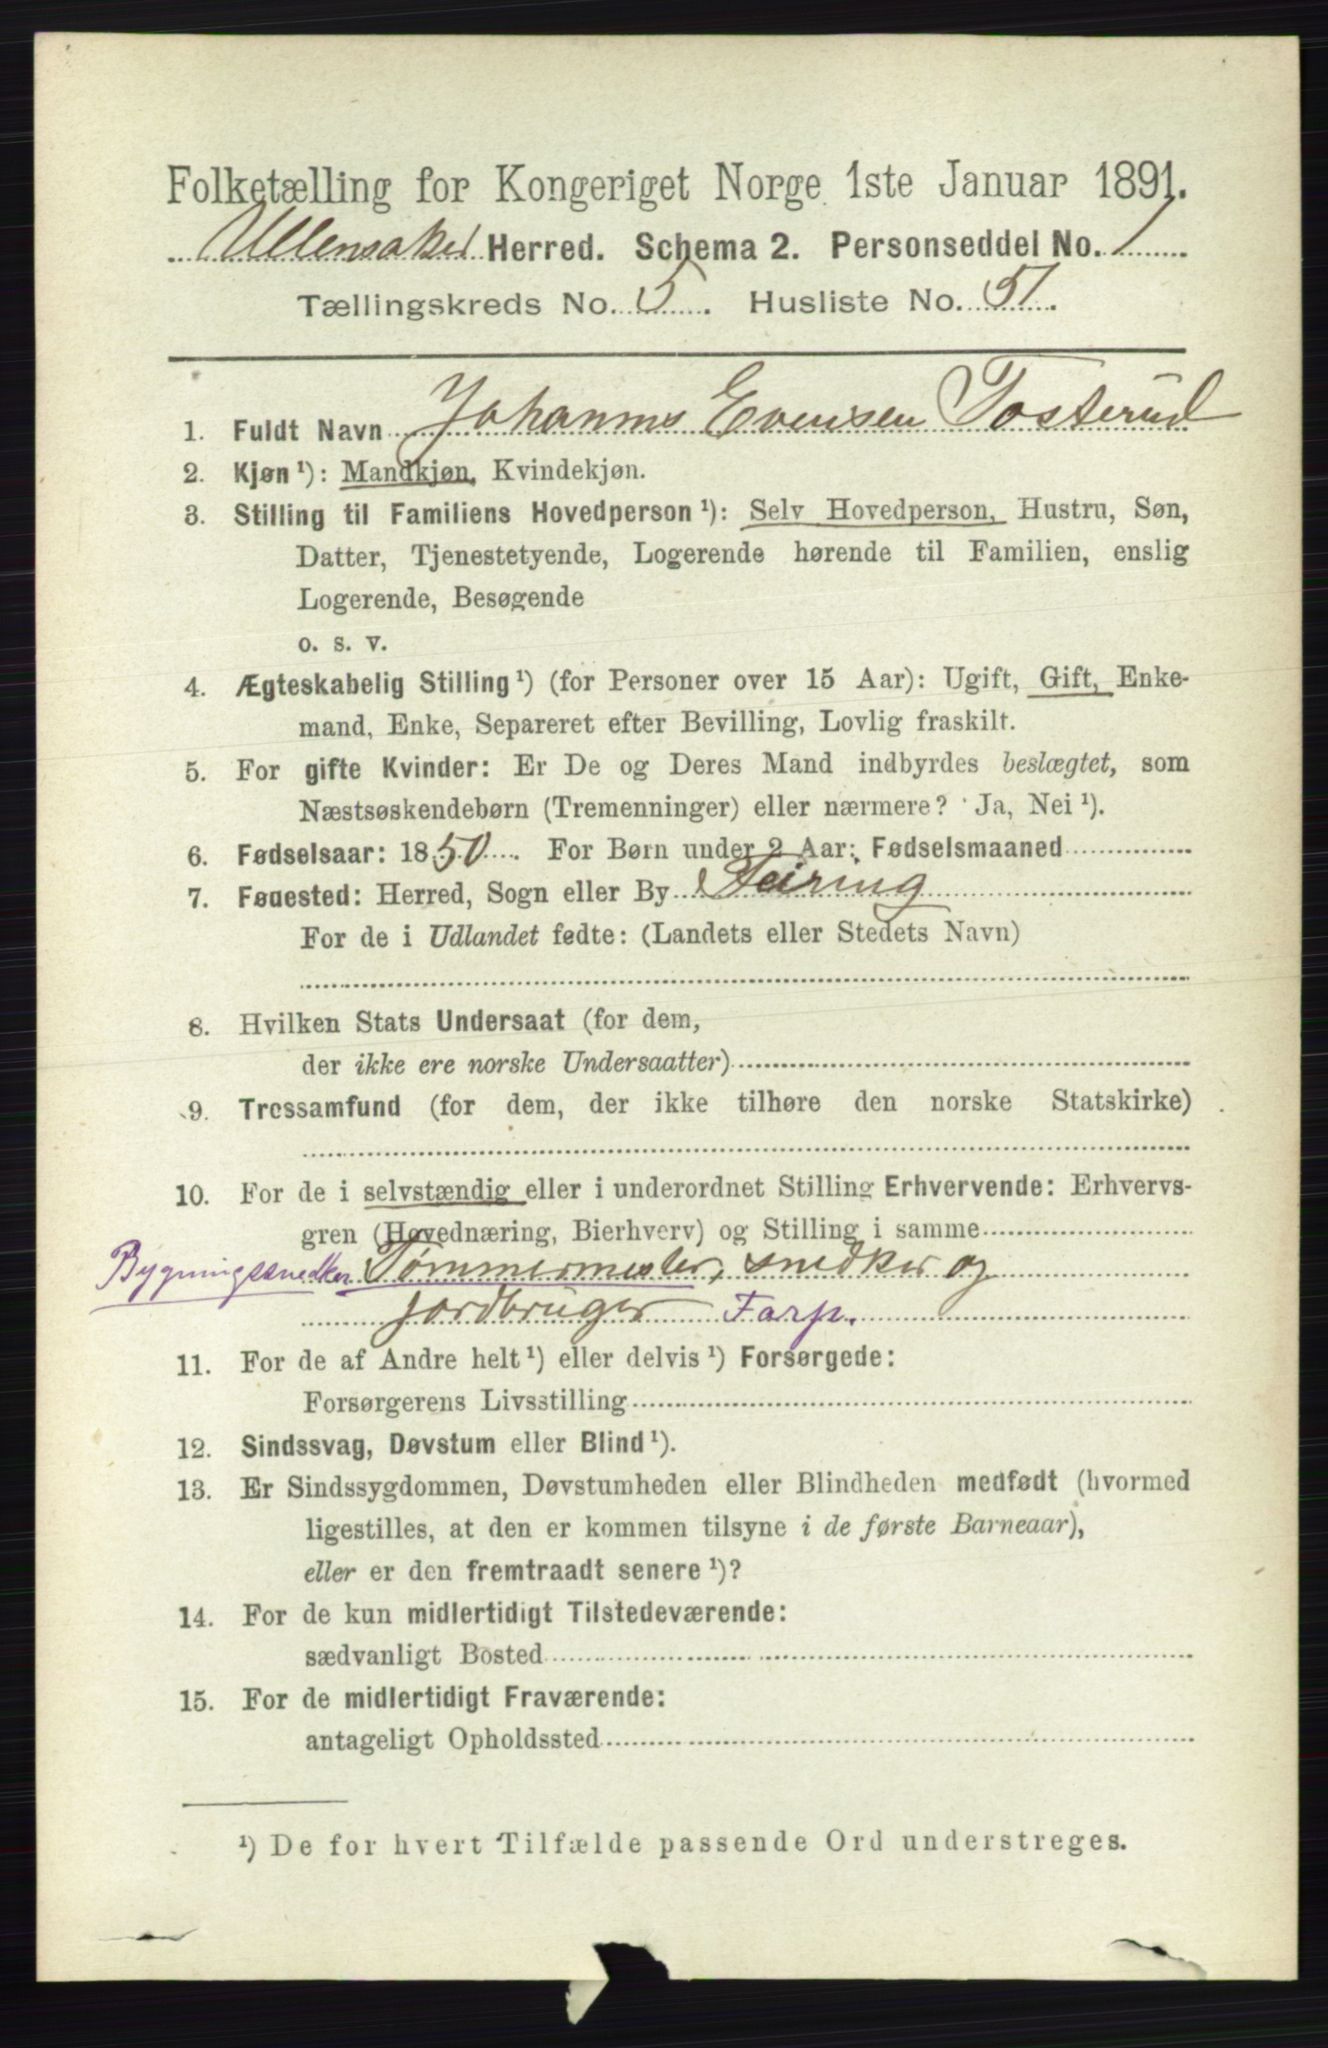 Folketælling for Kongeriget Norge 1ste Januar 1891.
Ullensaker Herred. Schema 2. Personseddel No. 1
Tællingskreds No. 5. Husliste No. 51.
1. Fuldt Navn Johannes Evensen Tosterud
2. Kjøn ¹): Mandkjøn, Kvindekjøn.
3. Stilling til Familiens Hovedperson ¹): Selv Hovedperson, Hustru, Søn,
Datter, Tjenestetyende, Logerende hørende til Familien, enslig
Logerende, Besøgende
o. s. v.
4. Ægteskabelig Stilling ¹) (for Personer over 15 Aar): Ugift, Gift, Enke-
mand, Enke, Separeret efter Bevilling, Lovlig fraskilt.
5. For gifte Kvinder: Er De og Deres Mand indbyrdes beslægtet, som
Næstsøskendebørn (Tremenninger) eller nærmere? Ja, Nei ¹).
6. Fødselsaar: 1850. For Børn under 2 Aar: Fødselsmaaned
7. Føuested: Herred, Sogn eller By Feiring
For de i Udlandet fødte: (Landets eller Stedets Navn)
8. Hvilken Stats Undersaat (for dem,
der ikke ere norske Undersaatter)
9. Trossamfund (for dem, der ikke tilhøre den norske Statskirke)
10. For de i selvstændig eller i underordnet Stilling Erhvervende: Erhvervs-
gren (Hovednæring, Bierhverv) og Stilling i samme
Bygningssnedker Tømmermester, snedker og
jordbruger Farp.
11. For de af Andre helt ¹) eller delvis ¹) Forsørgede:
Forsørgerens Livsstilling
12. Sindssvag, Døvstum eller Blind ¹).
13. Er Sindssygdommen, Døvstumheden eller Blindheden medfødt (hvormed
ligestilles, at den er kommen tilsyne i de første Barneaar),
eller er den fremtraadt senere ¹)?
14. For de kun midlertidigt Tilstedeværende:
sædvanligt Bosted
15. For de midlertidigt Fraværende:
antageligt Opholdssted
¹) De for hvert Tilfælde passende Ord understreges.